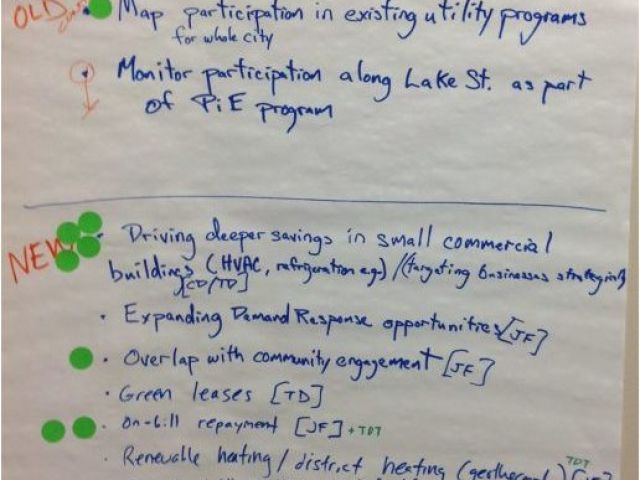 OLD
Map participation in existing utility programs
for whole city
Monitor participation along Lake St. as part
of PiE program
NEW
Driving deeper savings in small commercial
buildings (HVAC, refrigeration e.g.) / (targeting businesses strategically
[CD/TD]
Expanding Demand Response opportunities [JF]
Overlap with community engagement [JF]
Green leases [TD]
On-bill repayment [JF] + TDT
TDT
Renewable heating / district heating (geothermal)